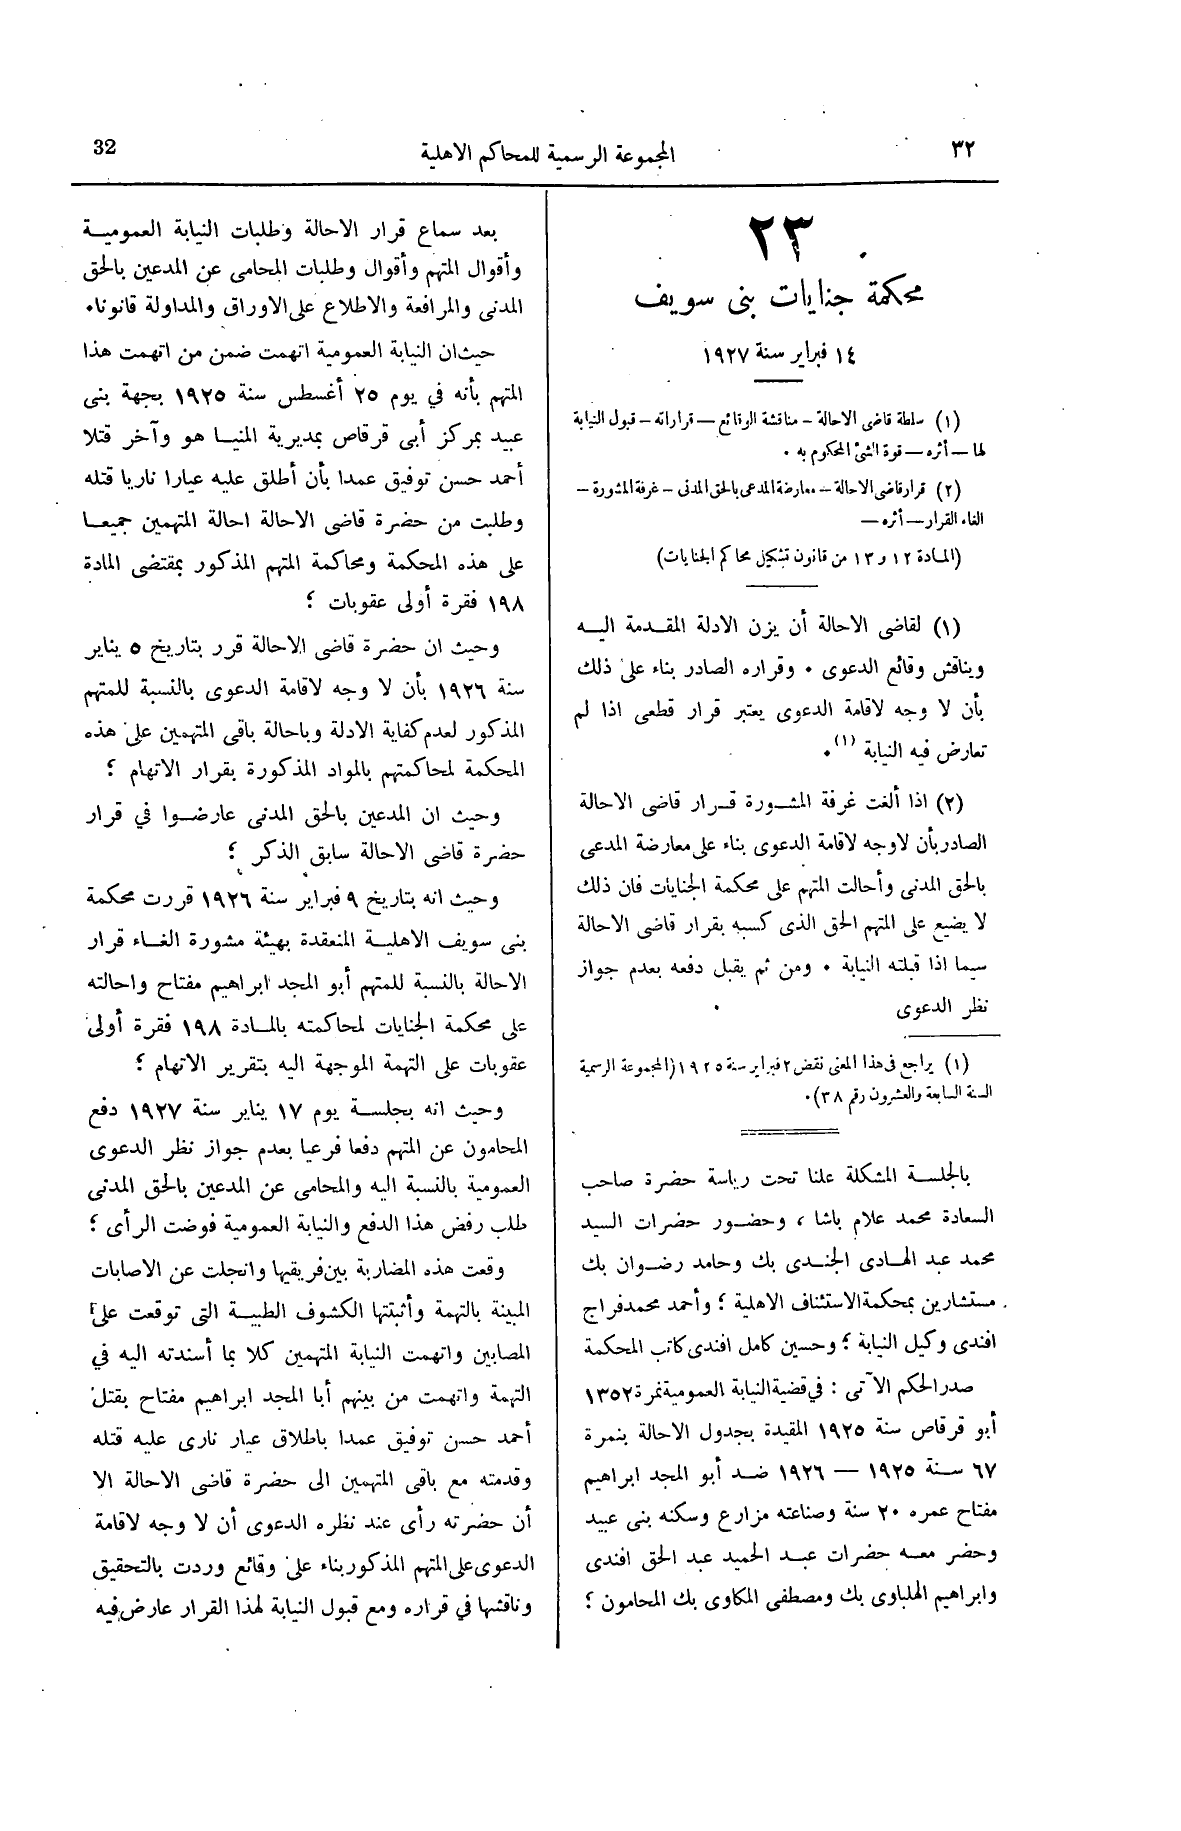 ٣٢
المجموعة الرسمية للمحاكم الاهلية
32
٢٣
محكمة جنايات بنى سويف
١٤ فبراير سنة ١٩٢٧
(١) سلطة قاضى الاحالة – مناقشة الوقائع – قراراته – قبول النيابة
لها – أثره – قوة الشئ المحكوم به ٠
(٢) قرار قاضى الاحالة – معارضة المدعى بالحق المدنى – غرفة المشورة –
الغاء القرار – أثره –
(المادة ١٢ و ١٣ من قانون تشكيل محاكم الجنايات)
(١) لقاضى الاحالة أن يزن الادلة المقدمة اليه
ويناقش وقائع الدعوى ٠ وقراره الصادر بناء على ذلك
بأن لا وجه لاقامة الدعوى يعتبر قرار قطعى اذا لم
تعارض فيه النيابة (١)٠
(٢) اذا ألغت غرفة المشورة قرار قاضى الاحالة
الصادر بأن لاوجه لاقامة الدعوى بناء على معارضة المدعى
بالحق المدنى وأحالت المتهم على محكمة الجنايات فان ذلك
لا يضيع على المتهم الحق الذى كسبه بقرار قاضى الاحالة
سيما اذا قبلته النيابة ٠ ومن ثم يقبل دفعه بعدم جواز
نظر الدعوى ٠
(١) يراجع فى هذا المعنى نقض ٢ فبراير سنة ١٩٢٥ (المجموعة الرسمية
السنة السابعة والعشرون رقم ٣٨)٠
بالجلسة المشكلة علنا تحت رياسة حضرة صاحب
السعادة محمد علام باشا ، وحضور حضرات السيد
محمد عبد الهادى الجندى بك وحامد رضوان بك
مستشارين بمحكمة الاستئناف الاهلية ؛ وأحمد محمد فراج
افندى وكيل النيابة ؛ وحسين كامل افندى كاتب المحكمة
صدر الحكم الآتى : في قضية النيابة العمومية نمرة ١٣٥٢
أبو قرقاص سنة ١٩٢٥ المقيدة بجدول الاحالة بنمرة
٦٧ سنة ١٩٢٥ — ١٩٢٦ ضد أبو المجد ابراهيم
مفتاح عمره ٢٠ سنة وصناعته مزارع وسكنه بنى عبيد
وحضر معه حضرات عبد الحميد عبد الحق افندى
وابراهيم الهلباوى بك ومصطفى المكاوى بك المحامون ؛
بعد سماع قرار الاحالة وطلبات النيابة العمومية
وأقوال المتهم وأقوال وطلبات المحامى عن المدعين بالحق
المدنى والمرافعة والاطلاع على الاوراق والمداولة قانونا٠
حيث ان النيابة العمومية اتهمت ضمن من اتهمت هذا
المتهم بأنه في يوم ٢٥ أغسطس سنة ١٩٢٥ بجهة بنى
عبيد بمركز أبى قرقاص بمديرية المنيا هو وآخر قتلا
أحمد حسن توفيق عمدا بأن أطلق عليه عيارا ناريا قتله
وطلبت من حضرة قاضى الاحالة احالة المتهمين جميعا
على هذه المحكمة ومحاكمة المتهم المذكور بمقتضى المادة
١٩٨ فقرة أولى عقوبات ؛
وحيث ان حضرة قاضى الاحالة قرر بتاريخ ٥ يناير
سنة ١٩٢٦ بأن لا وجه لاقامة الدعوى بالنسبة للمتهم
المذكور لعدم كفاية الادلة وباحالة باقى المتهمين على هذه
المحكمة لمحاكمتهم بالمواد المذكورة بقرار الاتهام ؛
وحيث ان المدعين بالحق المدنى عارضوا في قرار
حضرة قاضى الاحالة سابق الذكر ؛
وحيث انه بتاريخ ٩ فبراير سنة ١٩٢٦ قررت محكمة
بنى سويف الاهلية المنعقدة بهيئة مشورة الغاء قرار
الاحالة بالنسبة للمتهم أبو المجد ابراهيم مفتاح واحالته
على محكمة الجنايات لمحاكمته بالمادة ١٩٨ فقرة أولى
عقوبات على التهمة الموجهة اليه بتقرير الاتهام ؛
وحيث انه بجلسة يوم ١٧ يناير سنة ١٩٢٧ دفع
المحامون عن المتهم دفعا فرعيا بعدم جواز نظر الدعوى
العمومية بالنسبة اليه والمحامى عن المدعين بالحق المدنى
طلب رفض هذا الدفع والنيابة العمومية فوضت الرأى ؛
وقعت هذه المضاربة بين فريقيها وانجلت عن الاصابات
المبينة بالتهمة وأثبتتها الكشوف الطبية التى توقعت على
المصابين واتهمت النيابة المتهمين كلا بما أسندته اليه في
التهمة واتهمت من بينهم أبا المجد ابراهيم مفتاح بقتل
أحمد حسن توفيق عمدا باطلاق عيار نارى عليه قتله
وقدمته مع باقى المتهمين الى حضرة قاضى الاحالة الا
أن حضرته رأى عند نظره الدعوى أن لا وجه لاقامة
الدعوى على المتهم المذكور بناء على وقائع وردت بالتحقيق
وناقشها في قراره ومع قبول النيابة لهذا القرار عارض فيه